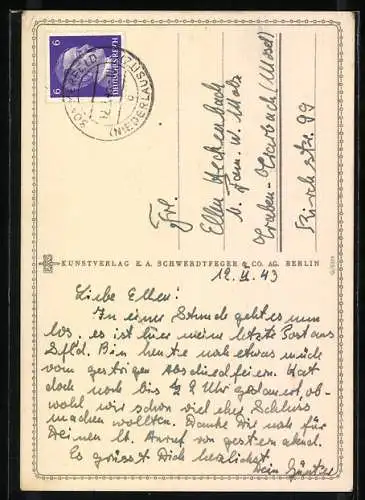 6 6
DEUTSCHES REICH
(NIEDERLAUSITZ)
Frl.
Ellen Heckenbach
b. Fam. W. Metz
Traben-Trarbach (Mosel)
Kirchstr. 99
KUNSTVERLAG E. A. SCHWERDTFEGER & CO. AG. BERLIN
12. 43
Liebe Ellen!
In einer Stunde geht es nun
los. es ist hier meine letzte Post aus
Sfld. Bin heute noch etwas müde
vom gestrigen Abschiedfeiern. Hat
doch noch bis ½ 2 Uhr gedauert, ob-
wohl wir schon viel eher Schluss
machen wollten. Danke Dir noch für
Deinen lb. Anruf von gestern abend.
Es grüsst Dich herzlichst
Dein Günther